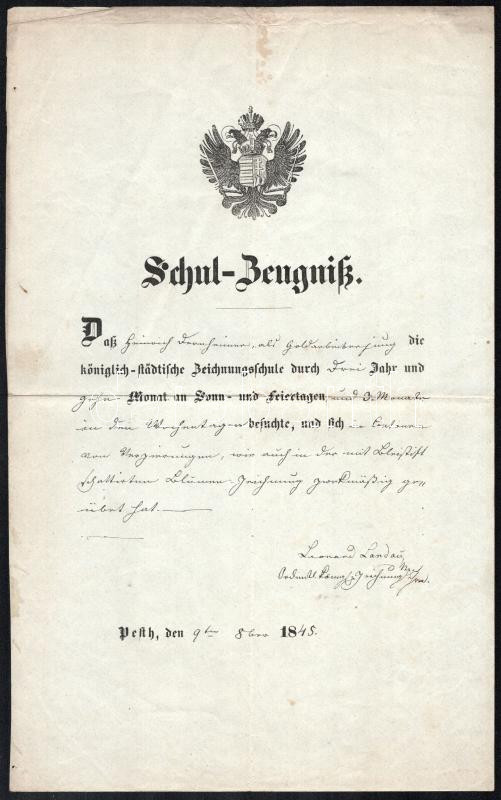 Schul-Zeugniß.
Daß Heinrich Dernheimer, als Goldarbeiterjung die
königlich-städtische Zeichnungsschule durch Drei Jahr und
zehn Monat an Sonn- und Feiertagen und 3. Monate
in den Wochentagen besuchte, und sich in Contouren
von Verzierungen, wie auch in der mit Bleistift
schattirten Blumen-Zeichnung zweckmäßig ge-
übet hat.
Leonard Landau
Pesth, den 9ten 8ber 1845.